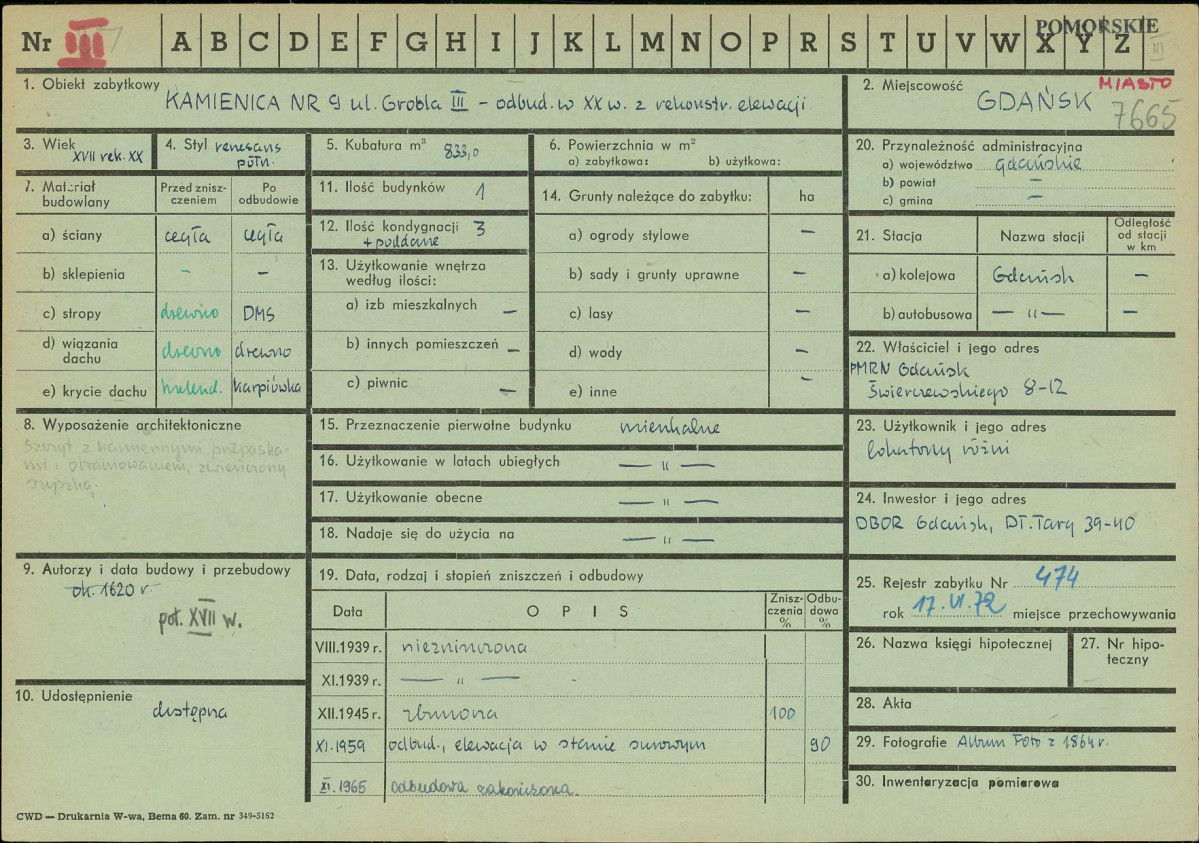 POMORSKIE
Nr III A B C D E F G H I J K L M N O P R S T U V W X Y Z III
1. Obiekt zabytkowy
KAMIENICA NR 9 ul. Grobla III – odbud. w XX w. z rekonstr. elewacji
2. Miejscowość MIASTO
GDAŃSK 7665
3. Wiek
XVII rek. XX
4. Styl renesans
półn.
5. Kubatura m³ 833,0
6. Powierzchnia w m²
a) zabytkowa: b) użytkowa:
20. Przynależność administracyjna
a) województwo gdańskie
b) powiat –
c) gmina –
7. Materiał budowlany
Przed znisz-
czeniem
Po
odbudowie
a) ściany cegła cegła
b) sklepienia – –
c) stropy drewno DMS
d) wiązania
dachu drewno drewno
e) krycie dachu holend. karpiówka
11. Ilość budynków 1
12. Ilość kondygnacji 3
+ poddasze
13. Użytkowanie wnętrza
według ilości:
a) izb mieszkalnych –
b) innych pomieszczeń –
c) piwnic –
14. Grunty należące do zabytku: ha
a) ogrody stylowe –
b) sady i grunty uprawne –
c) lasy –
d) wody –
e) inne –
21. Stacja Nazwa stacji
Odległość
od stacji
w km
a) kolejowa Gdańsk –
b) autobusowa — " — –
22. Właściciel i jego adres
PMRN Gdańsk
Świerczewskiego 8-12
8. Wyposażenie architektoniczne
Szczyt z kamiennymi przepaska-
mi i obramowaniem, zwieńczony
15. Przeznaczenie pierwotne budynku mieszkalne
16. Użytkowanie w latach ubiegłych — " —
17. Użytkowanie obecne — " —
18. Nadaje się do użycia na — " —
23. Użytkownik i jego adres
lokatorzy różni
24. Inwestor i jego adres
DBOR Gdańsk, Dł. Targ 39-40
9. Autorzy i data budowy i przebudowy
ok. 1620 r.
poł. XVII w.
19. Data, rodzaj i stopień zniszczeń i odbudowy
Data OPIS
Znisz-
czenia
%
Odbu-
dowa
%
VIII.1939 r. niezniszczona
XI.1939 r. — " —
XII.1945 r. zburzona 100
XI.1959 odbud., elewacja w stanie surowym 90
XI.1965 odbudowa zakończona.
25. Rejestr zabytku Nr 474
rok 17.VI.72 miejsce przechowywania
26. Nazwa księgi hipotecznej
27. Nr hipo-
teczny
10. Udostępnienie
dostępna
28. Akta
29. Fotografie Album Foto z 1864 r.
30. Inwentaryzacja pomiarowa
CWD — Drukarnia W-wa, Bema 60. Zam. nr 349-5162